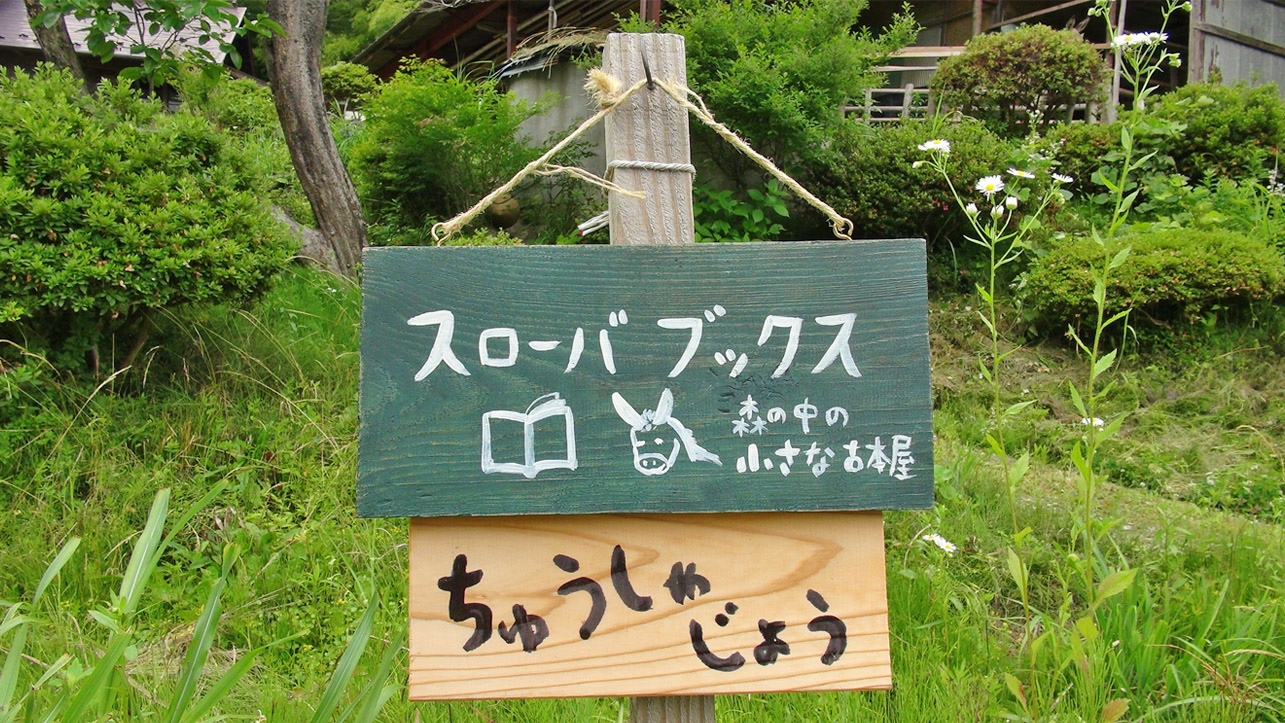 スローバ ブックス
森の中の
小さな古本屋
ちゅうしゃ
じょう